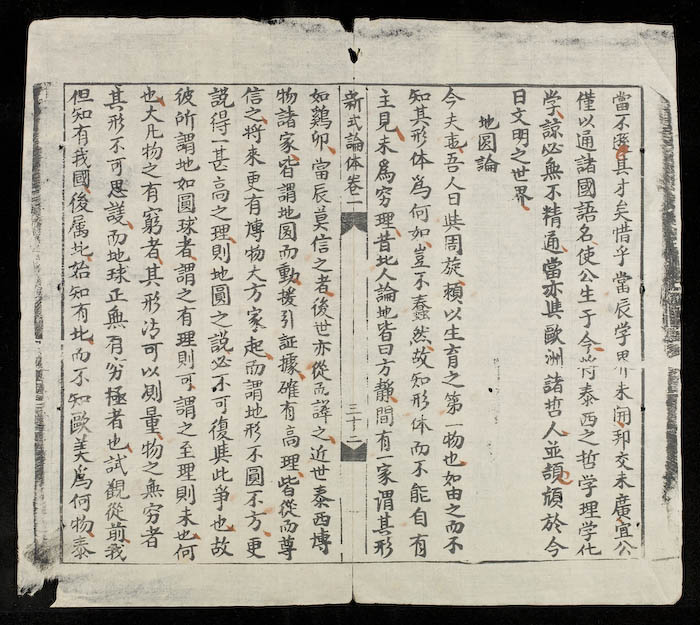 當不選其才矣惜乎當辰学界未開邦交未廣宜公
僅以通諸國語名使公生于今将泰西之哲学理学化
学諒必無不精通當亦與歐洲諸哲人並頡頏於今
日文明之世界
地圓論
今夫地吾人日與周旋頼以生育之第一物也如由之而不
知其形体爲何如豈不蠢然故知形体而不能自有
主見未爲穷理昔北人論地皆曰方靜間有一家謂其形
新式論体卷一
三十二
如鷄卵當辰莫信之者後世亦從而譯之近世泰西博
物諸家皆謂地圓而動援引証據確有高理皆從而尊
信之将來更有博物大方家起而謂地形不圓不方更
説得一甚高之理則地圓之説必不可復與此爭也故
彼所謂地如圓球者謂之有理則可謂之至理則未也何
也大凡物之有窮者其形方可以測量物之無穷者
其形不可思議而地球正無有穷極者也試觀從前我
但知有我國後属北始知有北而不知歐美爲何物泰